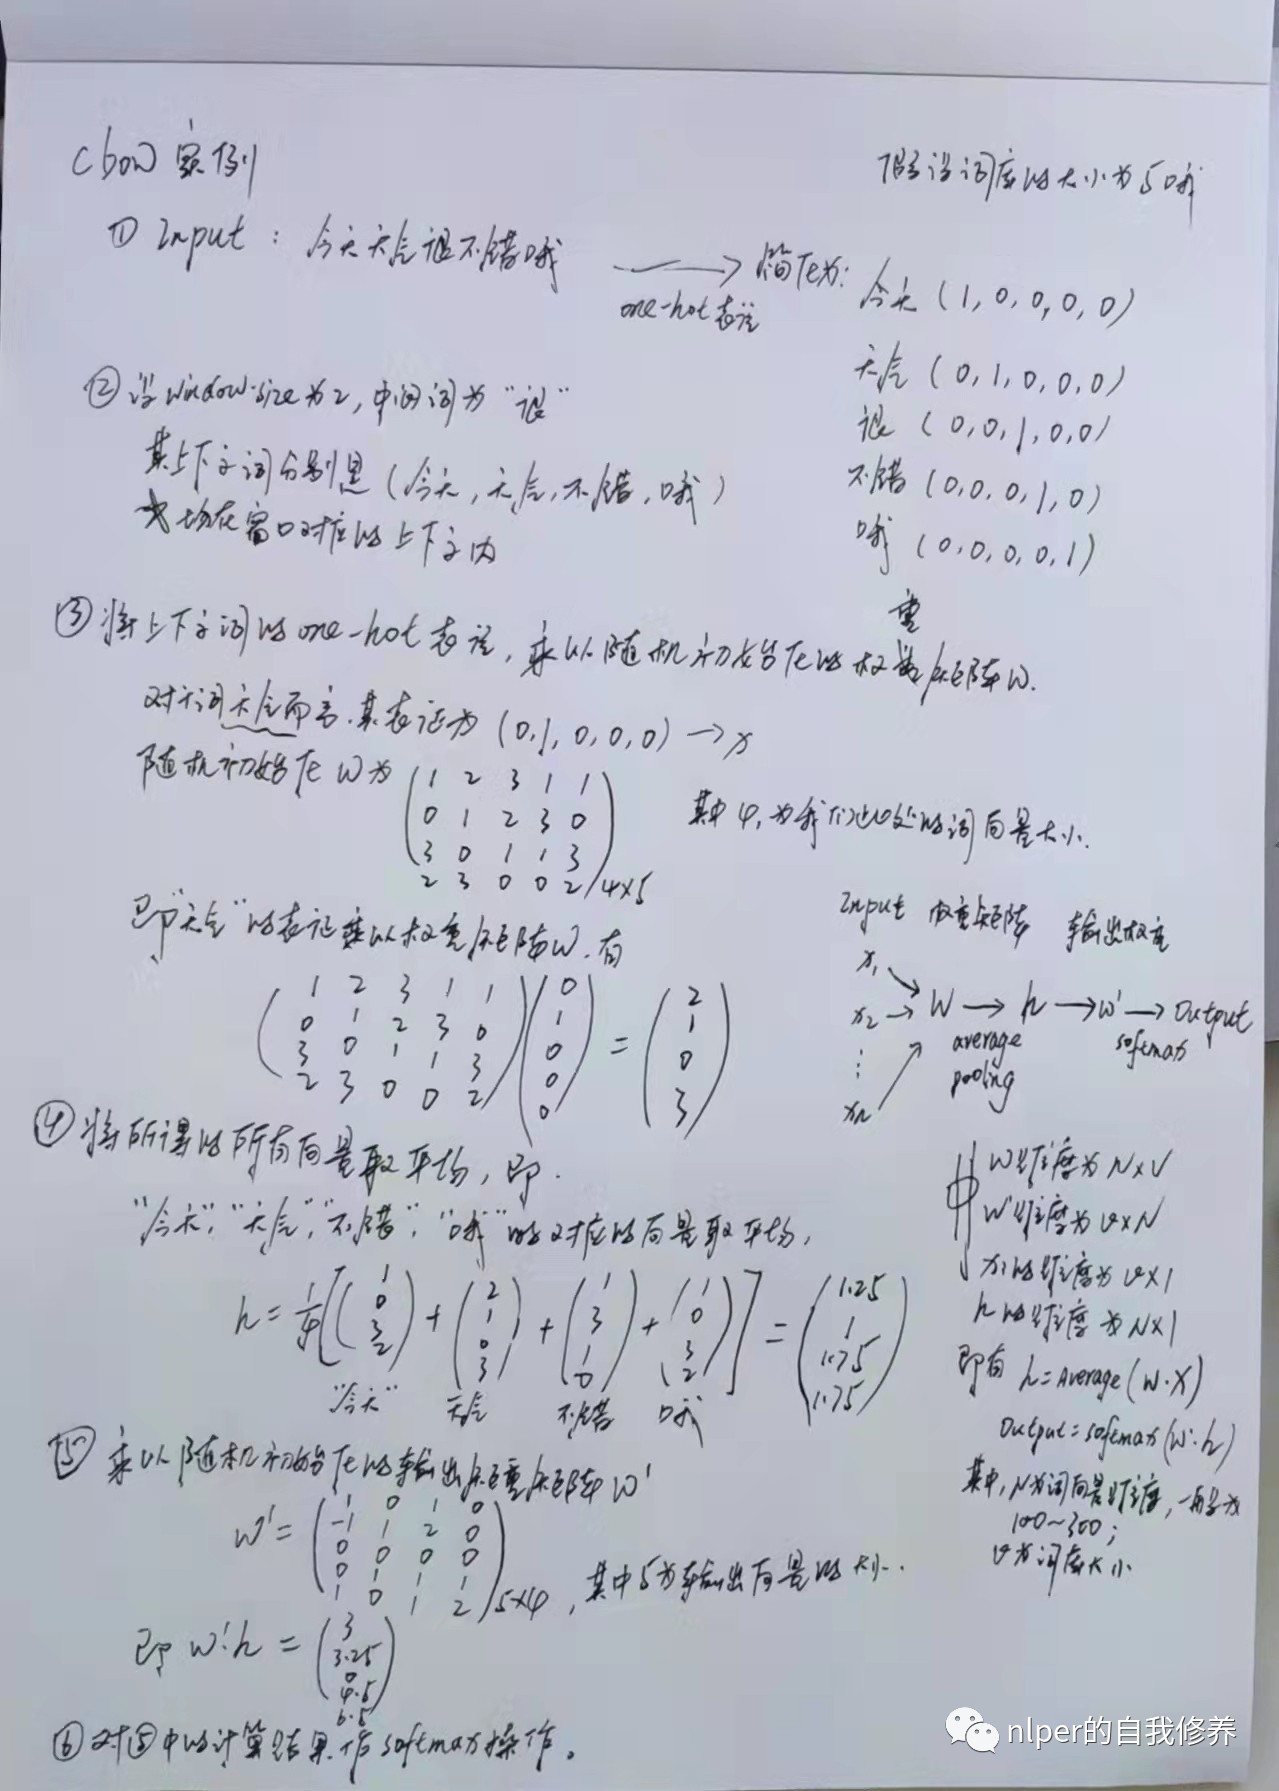 cbow案例
假设词库的大小为5哦
① Input: 今天天气很不错哦 → 简化为:
one-hot表证
今天 (1,0,0,0,0)
天气 (0,1,0,0,0)
很 (0,0,1,0,0)
不错 (0,0,0,1,0)
哦 (0,0,0,0,1)
② 设window-size为2,中间词为“很”
其上下文词分别是(今天,天气,不错,哦)
均在窗口对应的上下文内
③ 将上下文词的one-hot表证,乘以随机初始化的权重矩阵W.
对于词天气而言.其表证为 (0,1,0,0,0) → x
随机初始化W为
1 2 3 1 1
0 1 2 3 0
3 0 1 1 3
2 3 0 0 2
4×5
其中4,为我们此处的词向量大小.
即“天气”的表证乘以权重矩阵W.有
1 2 3 1 1 0 2
0 1 2 3 0 1 1
3 0 1 1 3 0 = 0
2 3 0 0 2 0 3
0
Input 权重矩阵 输出权重
x1
x2 → W → h → W' → Output
average softmax
pooling
⋮
xn
④ 将所得的所有向量取平均,即.
“今天”,“天气”,“不错”,“哦”的对应的向量取平均,
h = 1/4 [ (1 0 3 2) + (2 1 0 3) + (1 3 1 0) + (1 0 3 2) ] = (1.25 1 1.75 1.75)
“今天” 天气 不错 哦
W维度为N×V
W'维度为V×N
xi的维度为V×1
h的维度为N×1
即有 h=Average(W·X)
Output=softmax(W'·h)
其中,N为词向量维度,一般为
100~300;
V为词库大小
⑤ 乘以随机初始化的输出矩阵W'
W' =
1 0 1 0
-1 1 2 0
0 0 0 0
0 1 1 1
1 0 1 2
5×4
,其中5为输出向量的大小.
即 W'·h = (3 3.25 0 4.5 6.5)
⑥ 对⑤中的计算结果作softmax操作。
nlper的自我修养